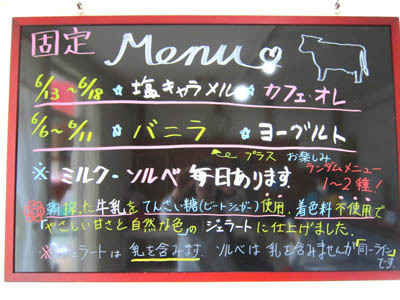 固定 Menu
6/13～6/18 ☆塩キャラメル☆カフェ・オレ
6/6～6/11 ☆バニラ ☆ヨーグルト
プラス お楽しみ
ランダムメニュー
※ミルク・ソルベ 毎日あります。
1～2種!
◎朝採った牛乳をてんさい糖(ビートシュガー)使用、着色料不使用で
「やさしい甘さと自然な色」のジェラートに仕上げました。
※ジェラートは 乳を含みます。 ソルベは 乳を含みませんが「同一ライン」
です。